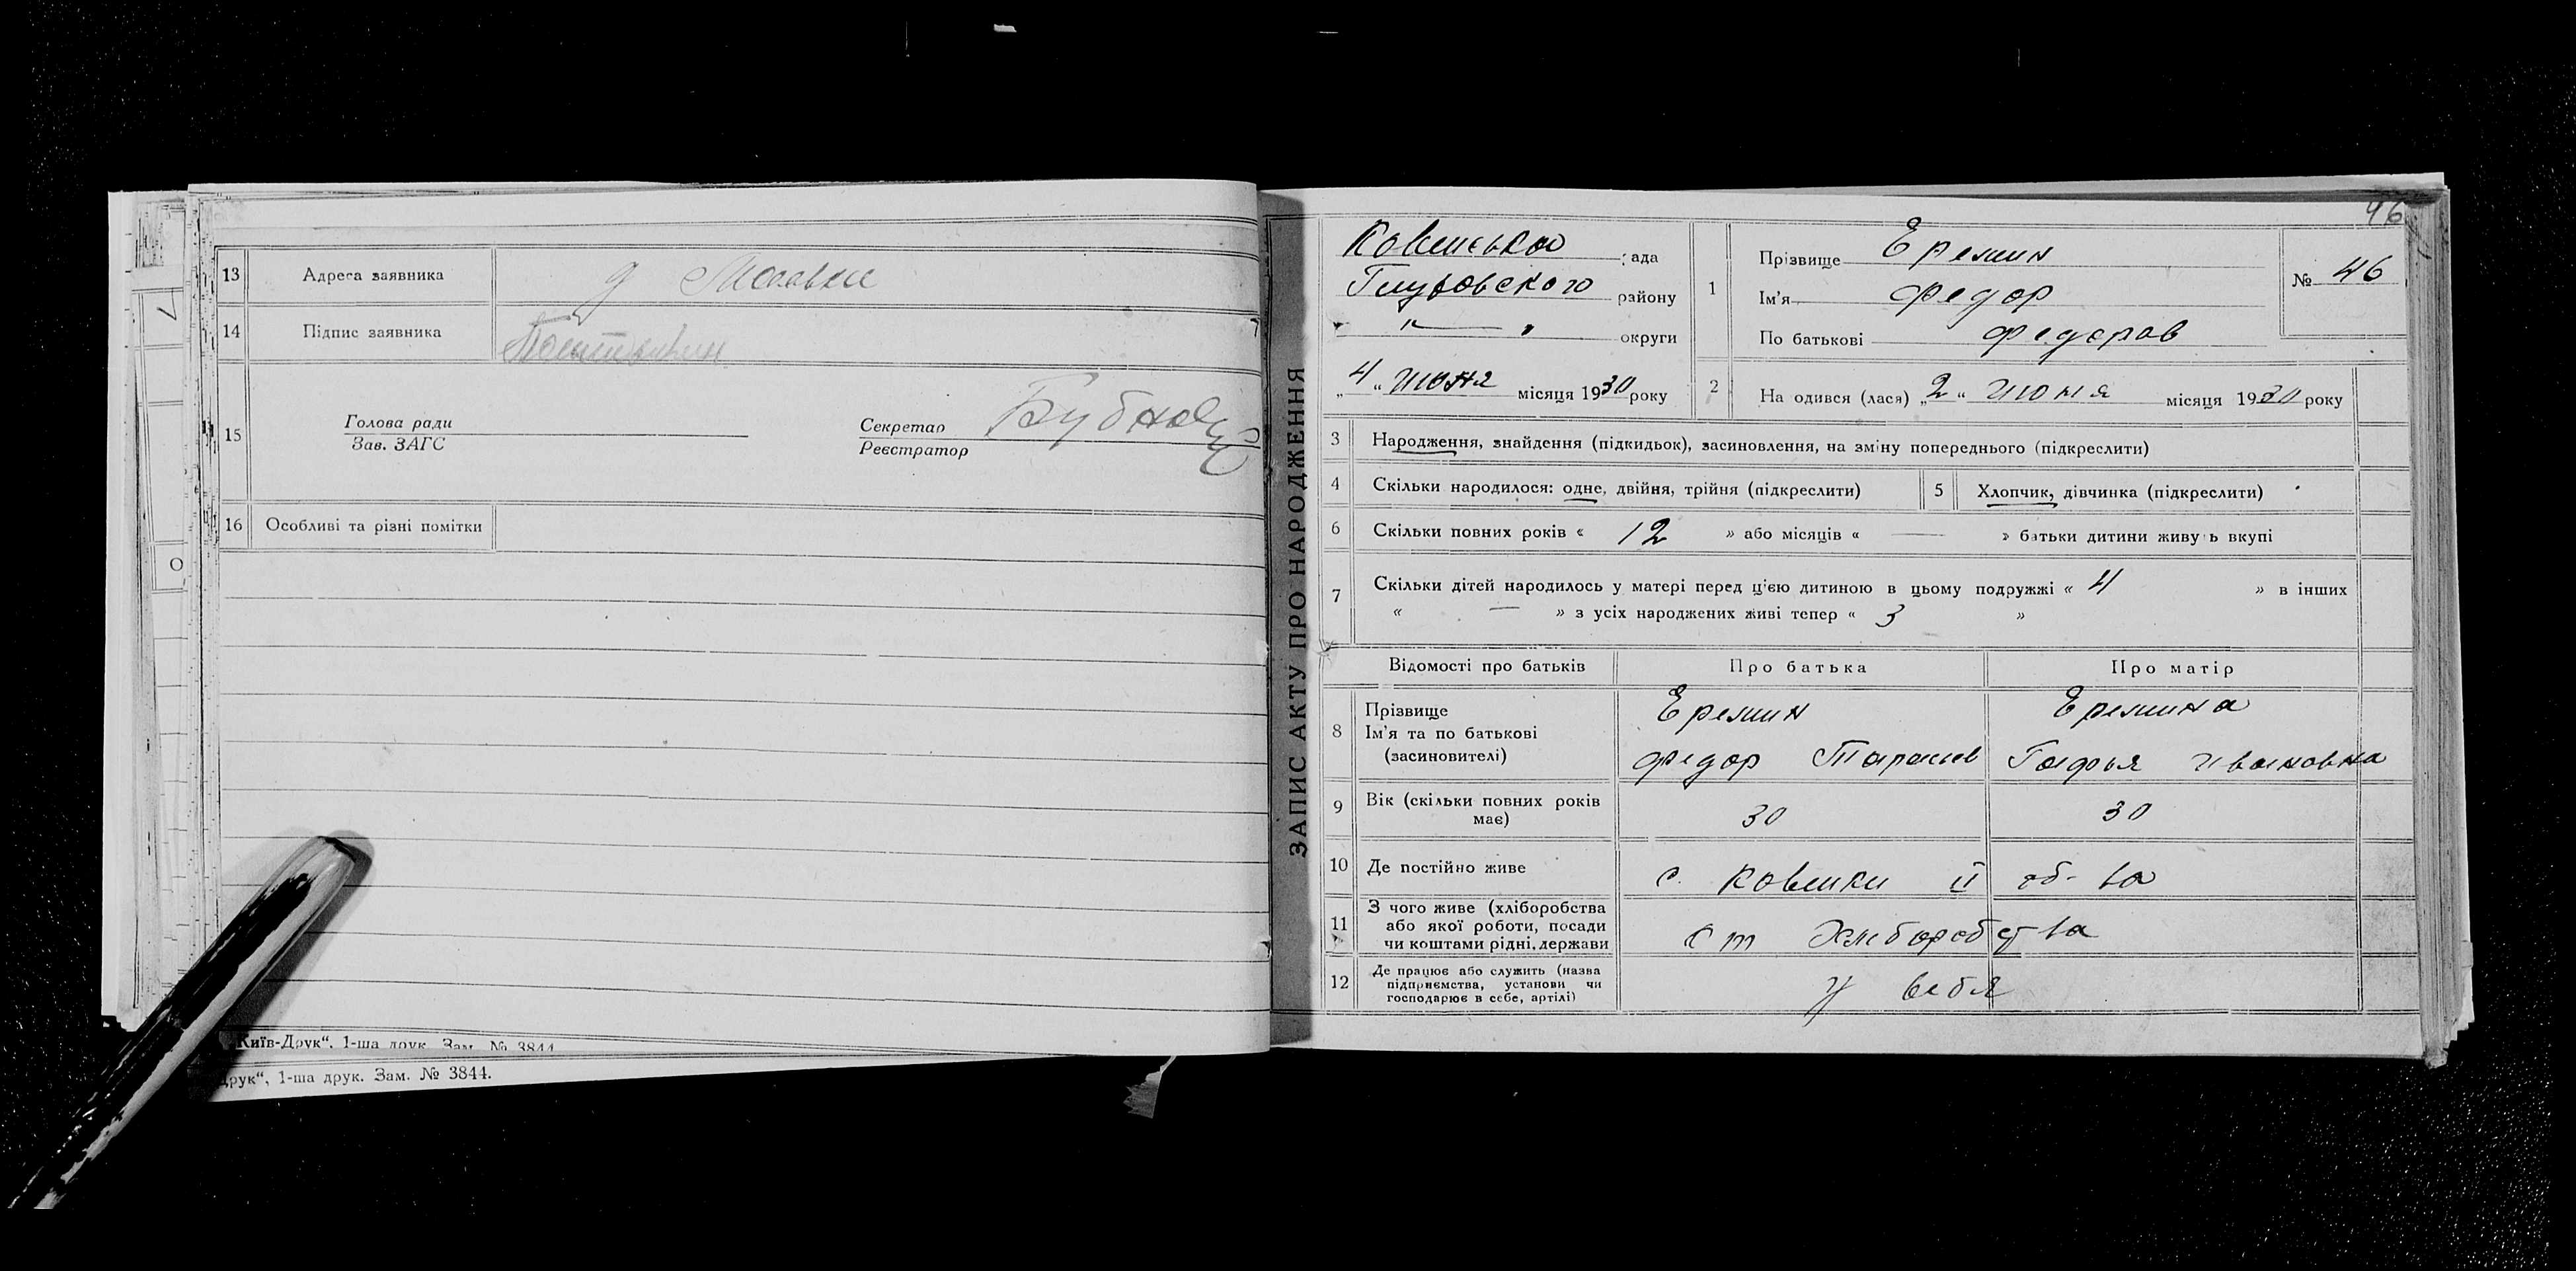 13 Адреса заявника д
14 Підпис заявника
15 Голова ради
Зав. ЗАГС
Секретар
Реєстратор
16 Особливі та різні помітки
О
Київ-Друк“. 1-ша друк. Зам. № 3844
друк“, 1-ша друк. Зам. № 3844.
ЗАПИС АКТУ ПРО НАРОДЖЕННЯ
46
рада
района
округи
„4“ июня місяця 1930 року
1 Прізвище Еремин
Ім'я Федор
По батькові Федоров
№ 46
2 На одився (лася) „2“ июня місяця 1930 року
3 Народження, знайдення (підкидьок), засиновлення, на зміну попереднього (підкреслити)
4 Скільки народилося: одне, двійня, трійня (підкреслити)
5 Хлопчик, дівчинка (підкреслити)
6 Скільки повних років « 12 » або місяців « — » батьки дитини живуть вкупі
7 Скільки дітей народилось у матері перед цією дитиною в цьому подружжі « 4 » в інших
« — » з усіх народжених живі тепер « 3 »
Відомості про батьків Про батька Про матір
8 Прізвище Еремин Еремина
Ім'я та по батькові
(засиновителі) Федор Гафья Ивановна
9 Вік (скільки повних років
має) 30 30
10 Де постійно живе с. Ковшики II об-ва
11 З чого живе (хліборобства
або якої роботи, посади
чи коштами рідні, держави
от Хлиборобства
12 Де працює або служить (назва
підприємства, установи чи
господарює в себе, артілі)
у себя